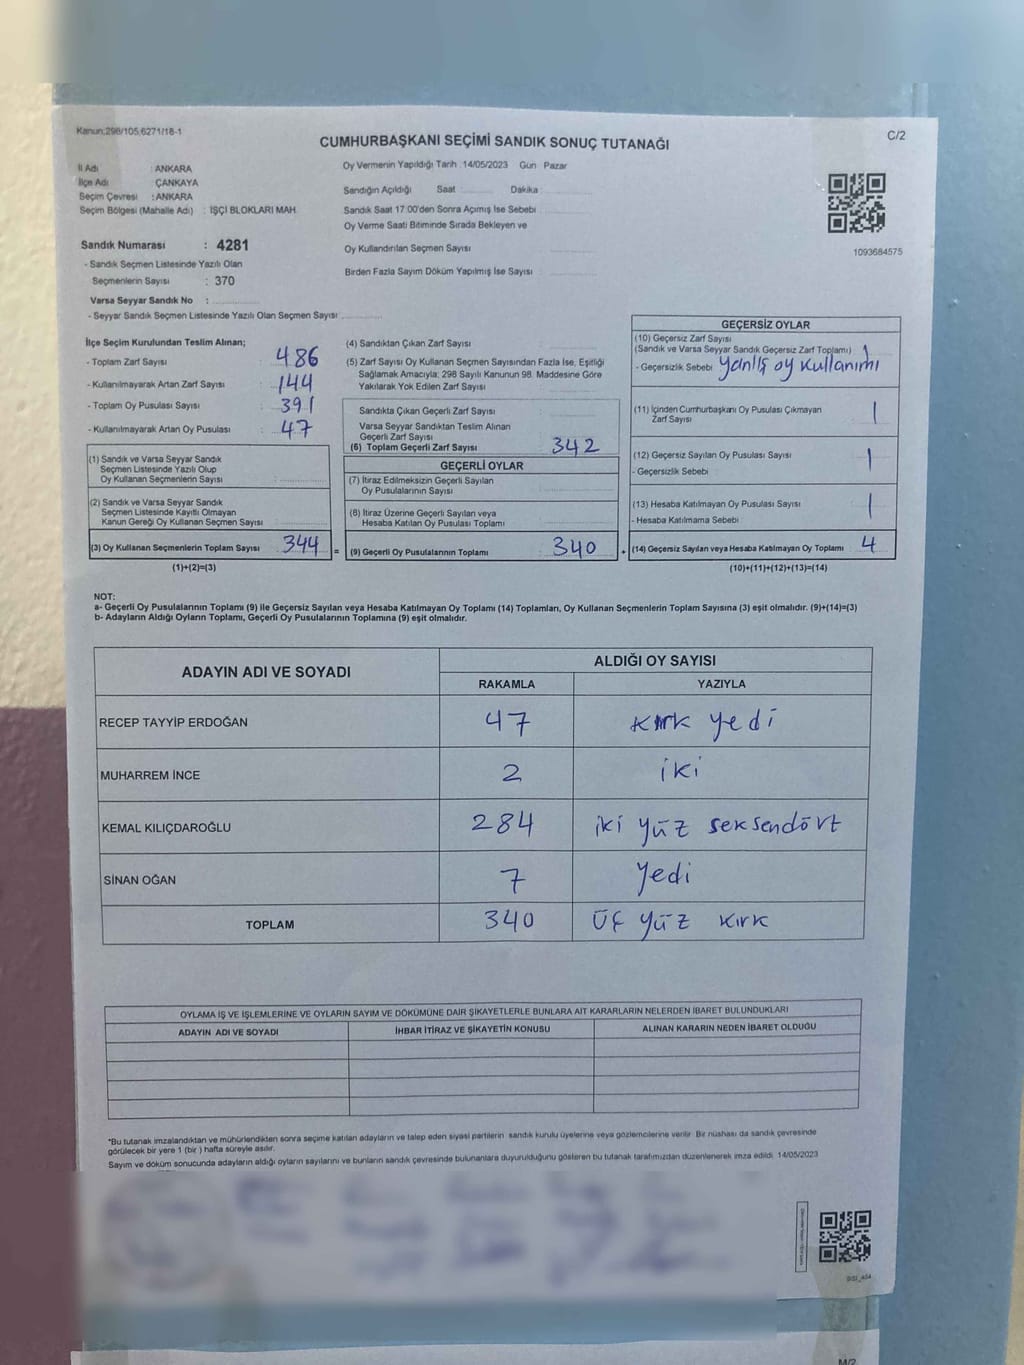 Kanun;298/105,6271/18-1
C/2
CUMHURBAŞKANI SEÇİMİ SANDIK SONUÇ TUTANAĞI
İl Adı : ANKARA
İlçe Adı : ÇANKAYA
Seçim Çevresi : ANKARA
Seçim Bölgesi (Mahalle Adı) : İŞÇİ BLOKLARI MAH.
Sandık Numarası : 4281
- Sandık Seçmen Listesinde Yazılı Olan
Seçmenlerin Sayısı : 370
Varsa Seyyar Sandık No :
- Seyyar Sandık Seçmen Listesinde Yazılı Olan Seçmen Sayısı
Oy Vermenin Yapıldığı Tarih 14/05/2023 Gün Pazar
Sandığın Açıldığı Saat Dakika
Sandık Saat 17:00'den Sonra Açımış İse Sebebi
Oy Verme Saati Bitiminde Sırada Bekleyen ve
Oy Kullandırılan Seçmen Sayısı
Birden Fazla Sayım Döküm Yapılmış İse Sayısı
1093684575
İlçe Seçim Kurulundan Teslim Alınan;
- Toplam Zarf Sayısı : 486
- Kullanılmayarak Artan Zarf Sayısı : 144
- Toplam Oy Pusulası Sayısı : 391
- Kullanılmayarak Artan Oy Pusulası : 47
(1) Sandık ve Varsa Seyyar Sandık
Seçmen Listesinde Yazılı Olup
Oy Kullanan Seçmenlerin Sayısı
(2) Sandık ve Varsa Seyyar Sandık
Seçmen Listesinde Kayıtlı Olmayan
Kanun Gereği Oy Kullanan Seçmen Sayısı
(3) Oy Kullanan Seçmenlerin Toplam Sayısı 344 =
(1)+(2)=(3)
(4) Sandıktan Çıkan Zarf Sayısı
(5) Zarf Sayısı Oy Kullanan Seçmen Sayısından Fazla İse, Eşitliği
Sağlamak Amacıyla; 298 Sayılı Kanunun 98. Maddesine Göre
Yakılarak Yok Edilen Zarf Sayısı
Sandıkta Çıkan Geçerli Zarf Sayısı
Varsa Seyyar Sandıktan Teslim Alınan
Geçerli Zarf Sayısı
(6) Toplam Geçerli Zarf Sayısı 342
GEÇERLİ OYLAR
(7) İtiraz Edilmeksizin Geçerli Sayılan
Oy Pusulalarının Sayısı
(8) İtiraz Üzerine Geçerli Sayılan veya
Hesaba Katılan Oy Pusulası Toplamı
(9) Geçerli Oy Pusulalarının Toplamı 340 +
GEÇERSİZ OYLAR
(10) Geçersiz Zarf Sayısı
(Sandık ve Varsa Seyyar Sandık Geçersiz Zarf Toplamı) 1
- Geçersizlik Sebebi yanlış oy kullanımı
(11) İçinden Cumhurbaşkanı Oy Pusulası Çıkmayan
Zarf Sayısı 1
(12) Geçersiz Sayılan Oy Pusulası Sayısı 1
- Geçersizlik Sebebi
(13) Hesaba Katılmayan Oy Pusulası Sayısı 1
- Hesaba Katılmama Sebebi
(14) Geçersiz Sayılan veya Hesaba Katılmayan Oy Toplamı 4
(10)+(11)+(12)+(13)=(14)
NOT:
a- Geçerli Oy Pusulalarının Toplamı (9) ile Geçersiz Sayılan veya Hesaba Katılmayan Oy Toplamı (14) Toplamları, Oy Kullanan Seçmenlerin Toplam Sayısına (3) eşit olmalıdır. (9)+(14)=(3)
b- Adayların Aldığı Oyların Toplamı, Geçerli Oy Pusulalarının Toplamına (9) eşit olmalıdır.
ADAYIN ADI VE SOYADI ALDIĞI OY SAYISI
RAKAMLA YAZIYLA
RECEP TAYYİP ERDOĞAN 47 kırk yedi
MUHARREM İNCE 2 iki
KEMAL KILIÇDAROĞLU 284 iki yüz seksendört
SİNAN OĞAN 7 yedi
TOPLAM 340 üç yüz kırk
OYLAMA İŞ VE İŞLEMLERİNE VE OYLARIN SAYIM VE DÖKÜMÜNE DAİR ŞİKAYETLERLE BUNLARA AİT KARARLARIN NELERDEN İBARET BULUNDUKLARI
ADAYIN ADI VE SOYADI İHBAR İTİRAZ VE ŞİKAYETİN KONUSU ALINAN KARARIN NEDEN İBARET OLDUĞU
*Bu tutanak imzalandıktan ve mühürlendikten sonra seçime katılan adayların ve talep eden siyasi partilerin sandık kurulu üyelerine veya gözlemcilerine verilir. Bir nüshası da sandık çevresinde
görülecek bir yere 1 (bir ) hafta süreyle asılır.
Sayım ve döküm sonucunda adayların aldığı oyların sayılarını ve bunların sandık çevresinde bulunanlara duyurulduğunu gösteren bu tutanak tarafımızdan düzenlenerek imza edildi. 14/05/2023
M/2